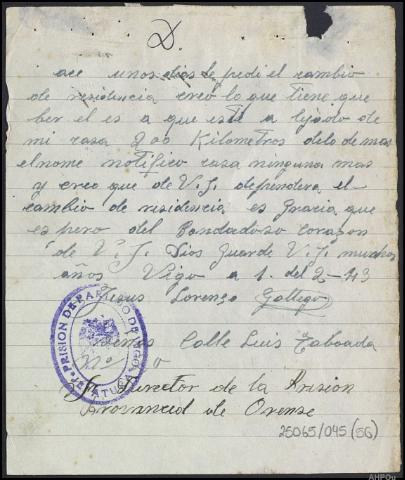 D.
ace unos dias le pedi el cambio
de residencia creo lo que tiene que
ber el es a que este a lejado de
mi casa 200 Kilometros delo demas
el nome notifico casa ninguna mas
y creo que de V.J. dependera el
cambio de residencia es Gracia que
es pero del Bondadoso Corazon
de V.J. Dios Guarde V.J. muchos
años Vigo a 1. del 2-43
Jesus Lorenzo Gallego
Calle Luis Taboada
Nº
PRISION DE PARTIDO DE VIGO
JEFATURA
Sr Director de la Prision
Provincial de Orense
25065/045 (56)
AHPOu